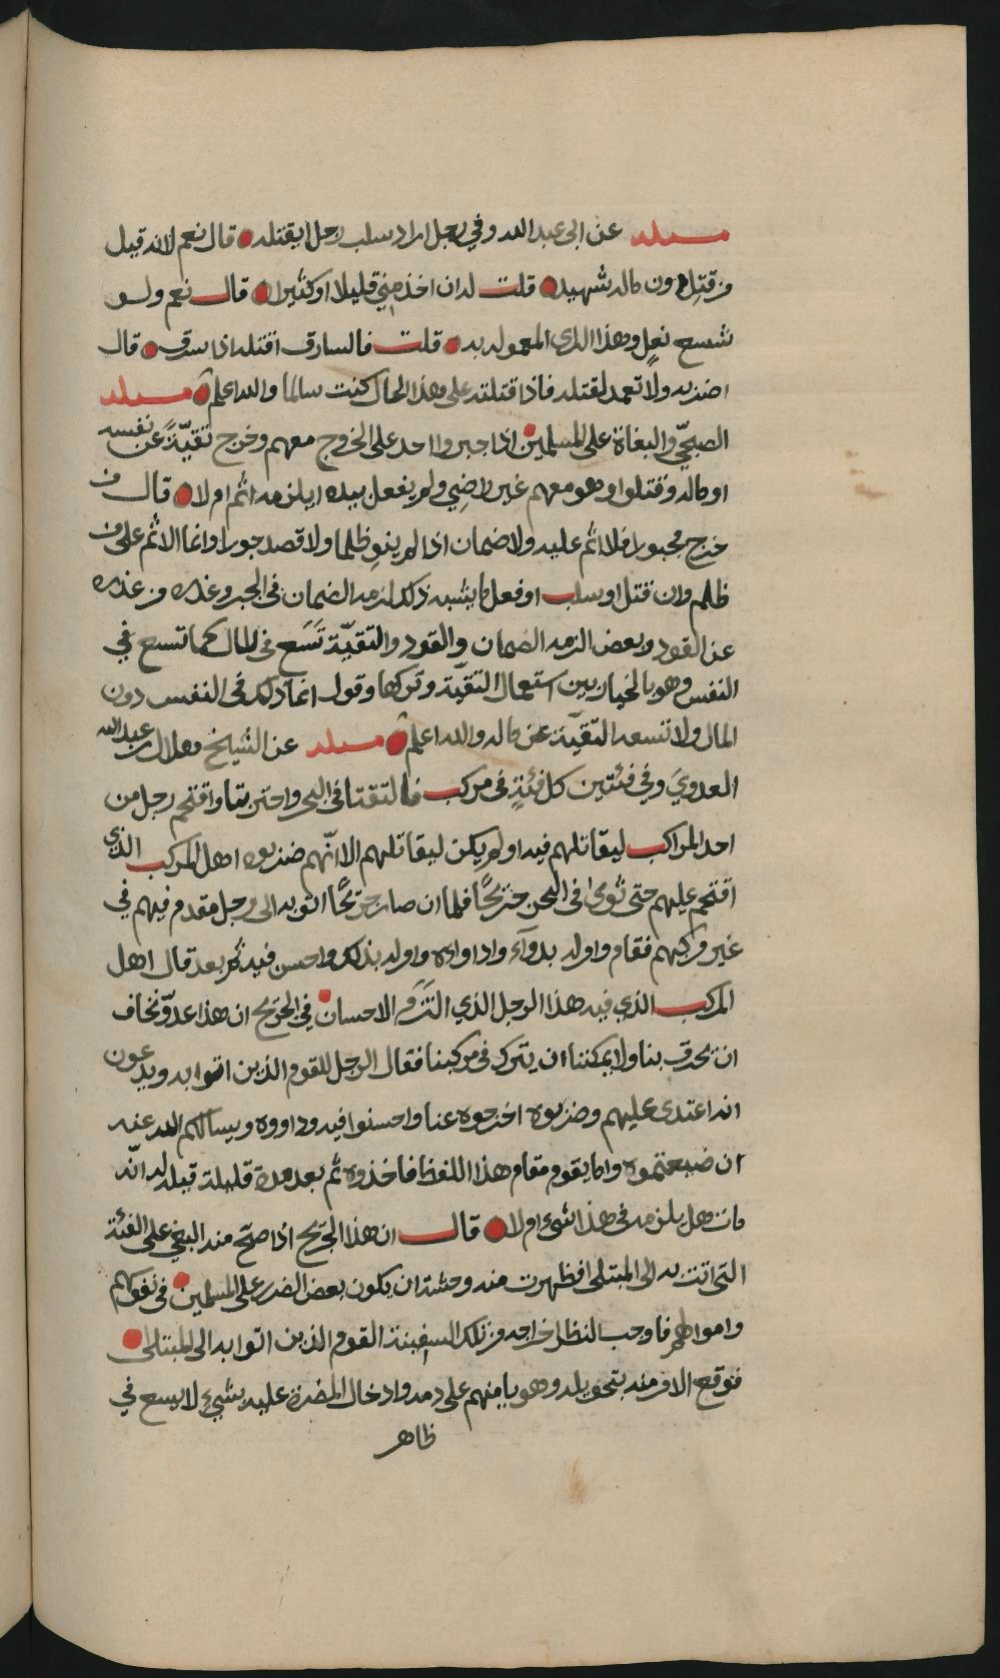 مسئلة عن ابي عبدالله وفي رجل اراد سلب رجل ايقتله قال نعم لانه قيل
من قتل دون ماله شهيد قلت له ان اخذ مني قليلا او كثيرا قال نعم ولو
شسع نعل وهذا الذي المعمول به قلت فالسارق اقتله اذا سرق قال
اضربه ولا تعمد لقتله فاذا قتلته على هذا الحال كنت سالما والله اعلم مسئلة
الصبحي والبغاة على المسلمين اذا جبروا احد على الخروج معهم وخرج تقيّةً عن نفسه
او ماله وقتلوا وهو معهم غير راضي ولم يفعل بيده ايلزمه اثم ام لا قال من
خرج مجبورا فلا اثم عليه ولا ضمان اذا لم ينوِ ظلما ولا قصد جورا وانما الاثم على من
ظلم وان قتل او سلب او فعل ما يشبه ذلك لزمه الضمان في الجبر وغيره وعذره
عن القود وبعض الزمه الضمان والقود والتقيّة تَسَع في المال كما تسع في
النفس وهو بالخيار بين استعمال التقيّة وتركها وقول انما ذلك في النفس دون
المال ولا تسعه التّقيّة عن ماله والله اعلم مسئلة عن الشيخ هلال بن عبدالله
العدويَ وفي فئتين كل فئةٍ في مركب فالتقتا في البحر واحتربتا واقتحم رجل من
احد المراكب ليقاتلهم فيه او لم يكن ليقاتلهم الا انّهم ضربوه اهل المركب الذي
اقتحم عليهم حتى ثوى في البحر جريحًا فلما ان صار جريحًا اتو به الى رجل مقدم فيهم في
غير مركبهم فقام واولى بدوآء واداواه واوله بذلك واحسن فيه ثم بعد قال اهل
المركب الذي فيه هذا الرجل الذي التزم الاحسان في الجريح ان هذا عدوّ نخاف
ان يحرق بنا ولا يمكننا ان يترك في مركبنا فقال الرجل للقوم الذين اتوا به ويدعون
انه اعتدى عليهم وضربوه اخرجوه عنا واحسنوا فيه وداووه ويسالكم الله عنه
ان ضيعتموه واما يقوم مقام هذا اللفظ فاخذوه ثم بعد مدة قليلة قيل له انّه
مات هل يلزمه في هذا شيء ام لا قال ان هذا الجريح اذا صحّ منه البغي على الفئة
التي اتت به الى المبتلى فظهرت منه وحشة ان يكون بعض الضرر على المسلمين في نفوسهم
واموالهم فاوجب النظر اخراجه من تلك السفينة القوم الذين اتوا به الى المبتلى
فوقع الامر منه بتحويله وهو يامنهم على دمه وادخال المضرة عليه بشيء لا يسع في
ظاهر